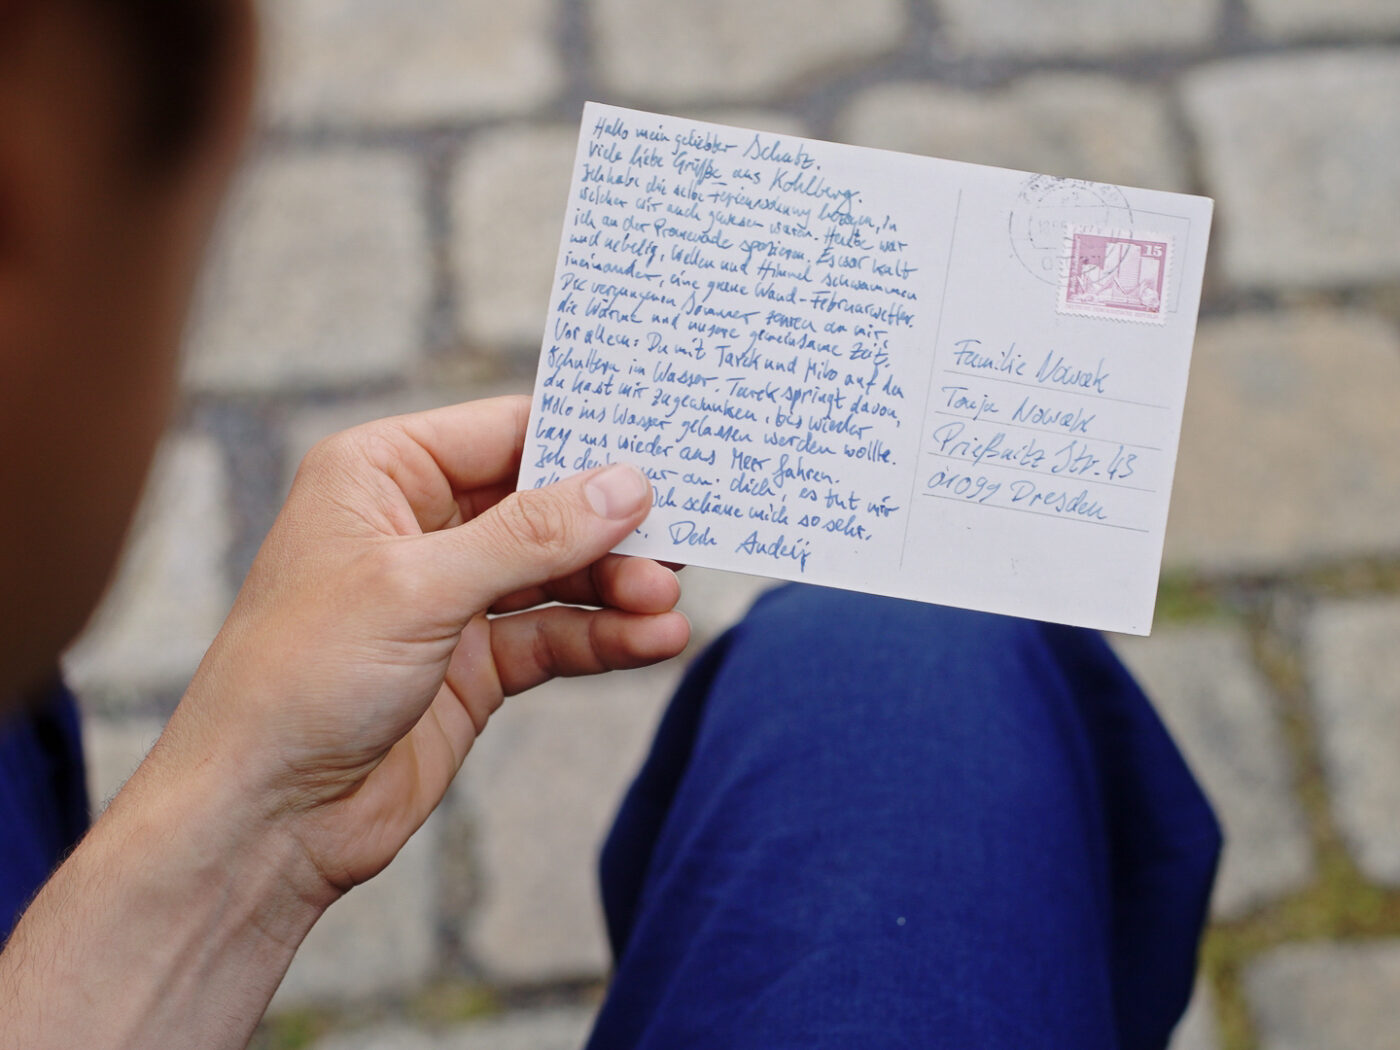 Hallo mein geliebter Schatz.
Viele liebe Grüße aus Kohlberg.
Ich habe die selbe Ferienwohnung bezogen, in
welcher wir auch gewesen waren. Heute war
ich an der Promenade spazieren. Es war kalt
und nebelig, Wellen und Himmel schwammen
ineinander, eine graue Wand - Februarwetter.
Den vergangenen Sommer an mir
die Wärme und unsere gemeinsame Zeit.
Vor allem: Du mit Tarek und Milo auf den
Schultern im Wasser. Tarek springt davon,
du hast mir zugewunken, bis wieder
Milo ins Wasser gelassen werden wollte.
Lass uns wieder ans Meer fahren.
Ich nur an dich, es tut mir
Ich schäme mich so sehr.
Dein Andrij
15
Familie Nowak
Tanja Nowak
Prießnitz Str. 43
01099 Dresden